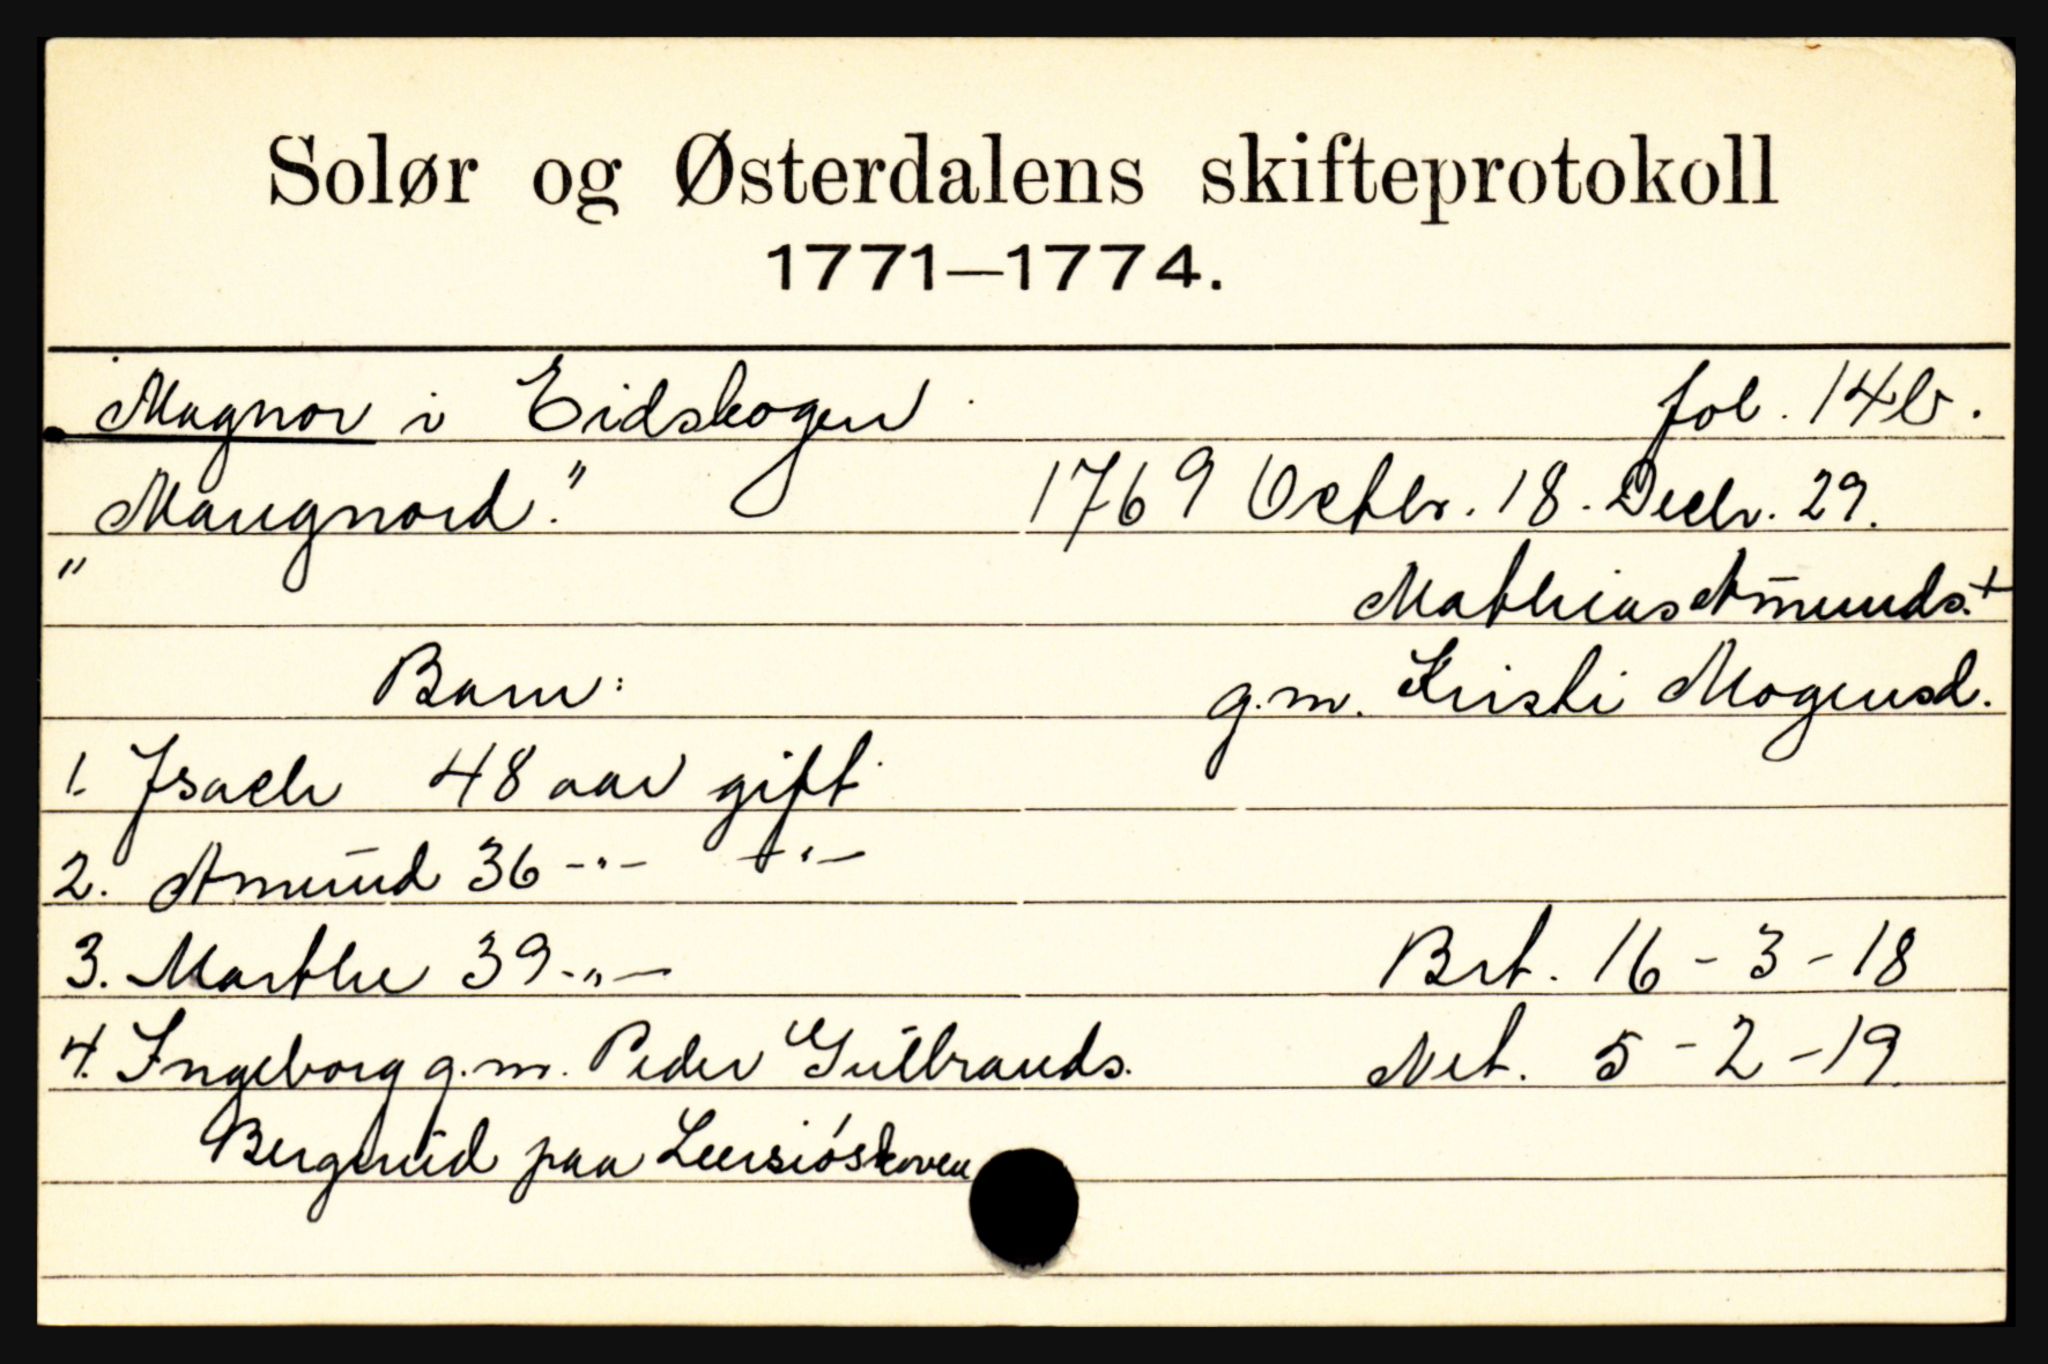 Solør og Østerdalens skifteprotokoll
1771—1774.
Magnor i Eidskogen fol. 14b.
"Maugnord." 1769 Octbr. 18. Decbr. 29.
" Mathias Amunds. +
Barn: g.m. Kristi Mogensd.
1. Isach 48 aar gift
2. Amund 36 -"- -"-
3. Marthe 39 -"-
Brt. 16 - 3 - 18
4. Ingeborg g.m. Peder Gulbrands. Net. 5 - 2 - 19
Bergerud paa Leersiöskoven